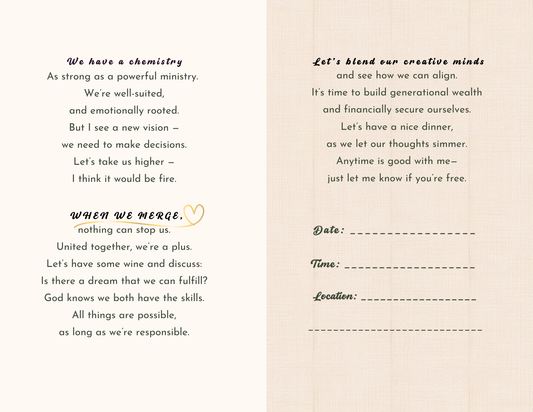 We have a chemistry
As strong as a powerful ministry.
We're well-suited,
and emotionally rooted.
But I see a new vision –
we need to make decisions.
Let's take us higher –
I think it would be fire.
WHEN WE MERGE,
nothing can stop us.
United together, we're a plus.
Let's have some wine and discuss:
Is there a dream that we can fulfill?
God knows we both have the skills.
All things are possible,
as long as we're responsible.
Let's blend our creative minds
and see how we can align.
It's time to build generational wealth
and financially secure ourselves.
Let's have a nice dinner,
as we let our thoughts simmer.
Anytime is good with me–
just let me know if you're free.
Date: _ _ _ _ _ _ _ _ _ _ _ _ _ _ _ _
Time: _ _ _ _ _ _ _ _ _ _ _ _ _ _ _ _
Location: _ _ _ _ _ _ _ _ _ _ _ _ _ _
_ _ _ _ _ _ _ _ _ _ _ _ _ _ _ _ _ _ _ _ _